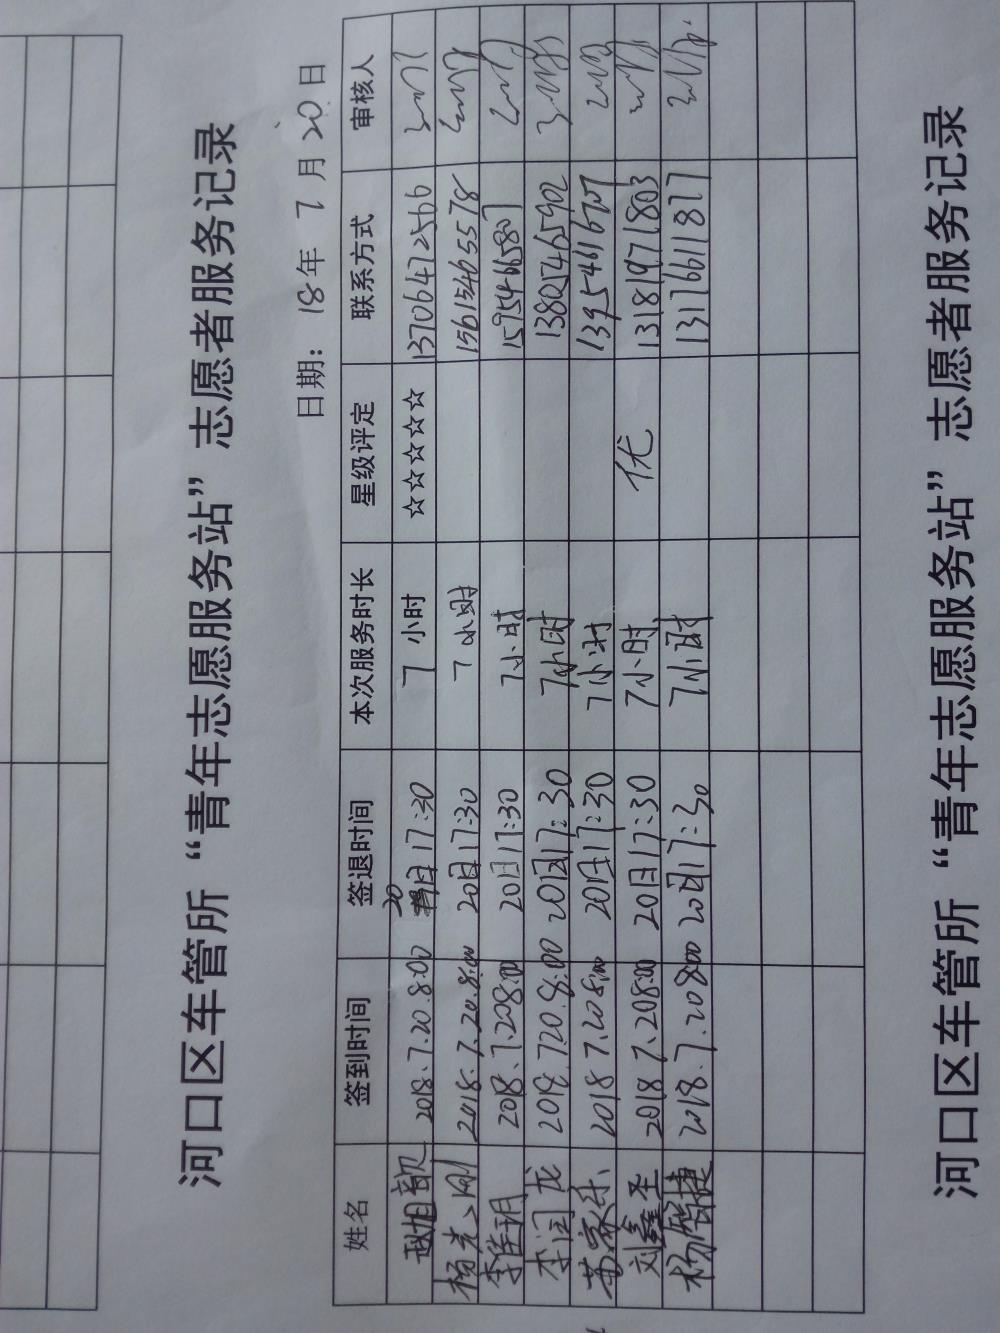 河口区车管所“青年志愿服务站”志愿者服务记录
日期：18年 7月20日
姓名 签到时间 签退时间 本次服务时长 星级评定 联系方式 审核人
2018.7.20.8:00 20日17:30 7 小时 ☆☆☆☆☆ 13706472566
杨光 2018.7.20.8:00 20日17:30 7小时 15615465578
李佳玥 2018.7.208:00 20日17:30 7小时
李闰龙 2018.720.8:00 20日17:30 7小时 13805465902
苏家乐 2018 7.208:00 20日17:30 7小时
刘鑫圣 2018 7.208:00 20日17:30 7小时 优 13181971803
杨智捷 2018.7.20800 20日17:30 7小时 13176611877
河口区车管所“青年志愿服务站”志愿者服务记录